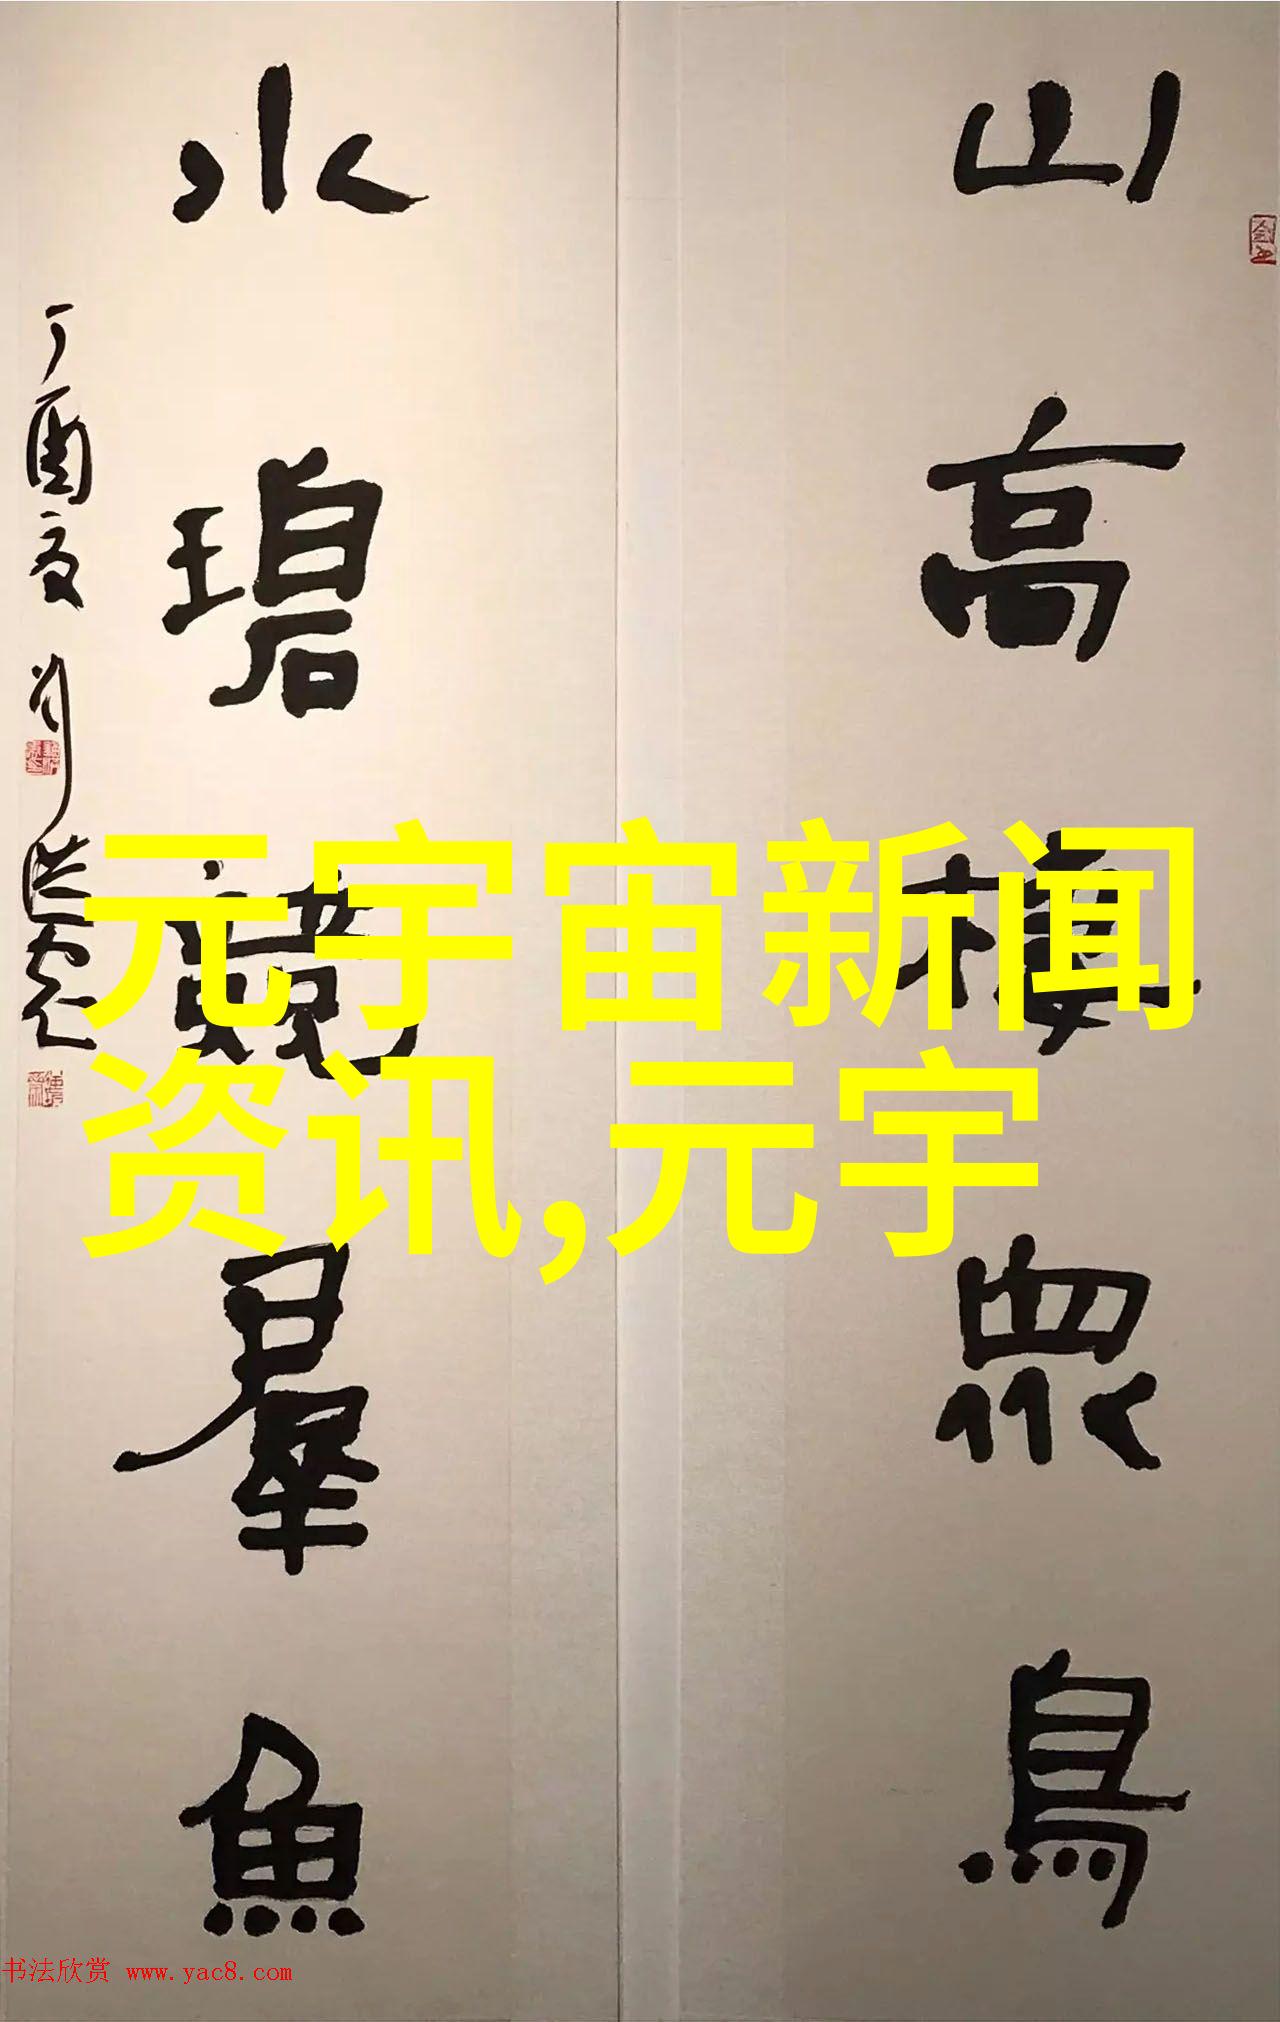 山高棲眾鳥
水碧競羣魚
丁酉夏
元宇宙新闻
资讯,元宇
书法欣赏 www.yac8.com